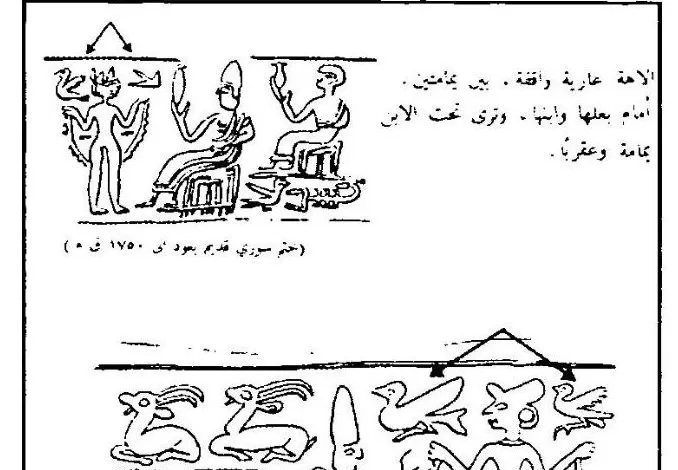 الاهة عارية واقفة، بين يمامتين،
أمام بعلها وابنها، وترى تحت الابن
يمامة وعقربًا.
(ختم سوري قديم يعود الى ١٧٥٠ ق ه )